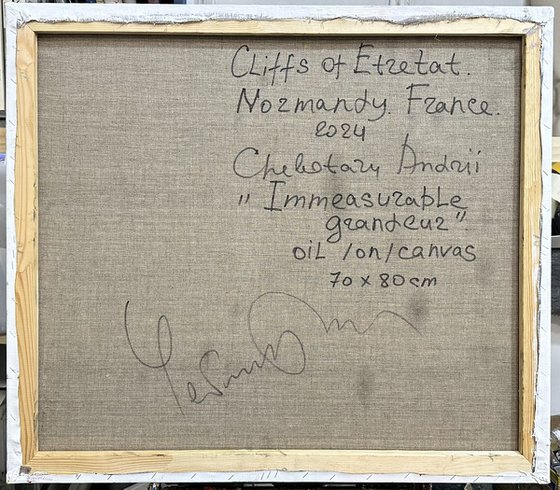 Cliffs of Etretat.
Normandy. France.
2024
Chebotaru Andrii
"Immeasurable
grandeur".
oil /on/canvas
70 x 80 cm